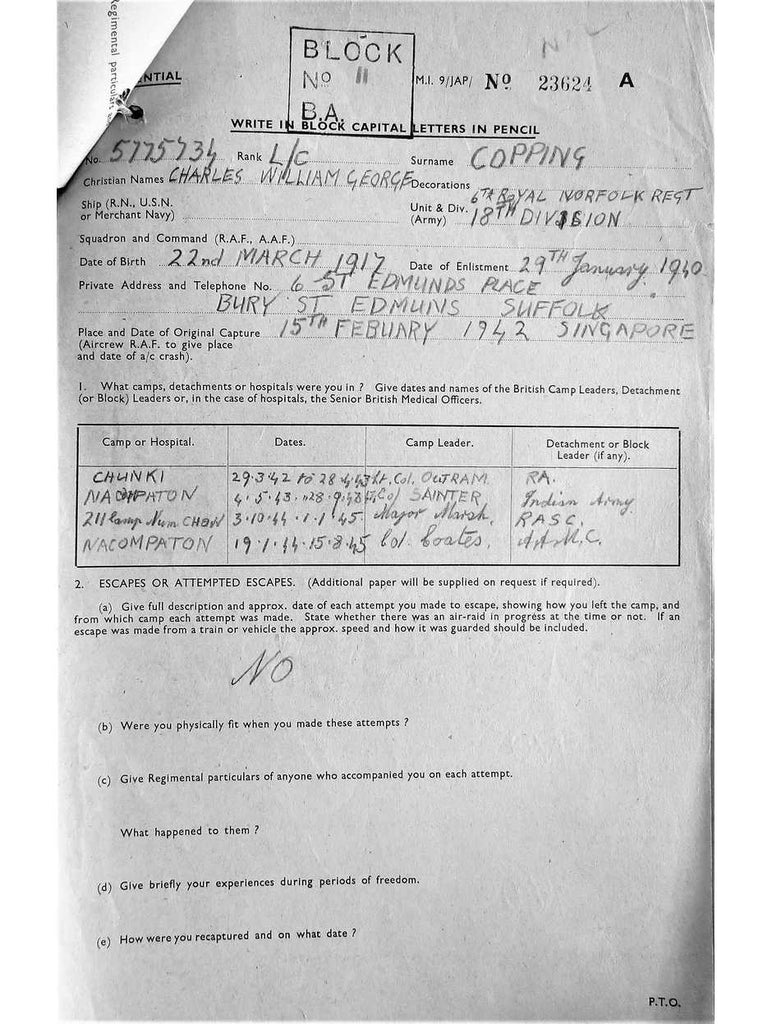 Regimental particulars
NTIAL
BLOCK
No 11
B.A.
M.I. 9/JAP/ No 23624 A
WRITE IN BLOCK CAPITAL LETTERS IN PENCIL
No. 5775734 Rank L/C Surname COPPING
Christian Names CHARLES WILLIAM GEORGE Decorations
Ship (R.N., U.S.N. or Merchant Navy)
Unit & Div. (Army) 6TH ROYAL NORFOLK REGT
18TH DIVISION
Squadron and Command (R.A.F., A.A.F.)
Date of Birth 22nd MARCH 1917 Date of Enlistment 29TH January 1940
Private Address and Telephone No. 6 ST EDMUNDS PLACE
BURY ST EDMUNS SUFFOLK
Place and Date of Original Capture 15TH FEBUARY 1942 SINGAPORE
(Aircrew R.A.F. to give place
and date of a/c crash).
1. What camps, detachments or hospitals were you in ? Give dates and names of the British Camp Leaders, Detachment
(or Block) Leaders or, in the case of hospitals, the Senior British Medical Officers.
Camp or Hospital. Dates. Camp Leader. Detachment or Block
Leader (if any).
CHUNKI 29.3.42 to 28.4.43 Lt. Col. OUTRAM RA.
NACOMPATON 4.5.43. 28.9.43 Col SAINTER Indian Army
211 Camp Num CHON 3.10.44. 1.1.45. Major Marsh. RASC.
NACOMPATON 19.1.44. 15.8.45 Col. Coates. A.A.M.C.
2. ESCAPES OR ATTEMPTED ESCAPES. (Additional paper will be supplied on request if required).
(a) Give full description and approx. date of each attempt you made to escape, showing how you left the camp, and
from which camp each attempt was made. State whether there was an air-raid in progress at the time or not. If an
escape was made from a train or vehicle the approx. speed and how it was guarded should be included.
NO
(b) Were you physically fit when you made these attempts ?
(c) Give Regimental particulars of anyone who accompanied you on each attempt.
What happened to them ?
(d) Give briefly your experiences during periods of freedom.
(e) How were you recaptured and on what date ?
P.T.O.